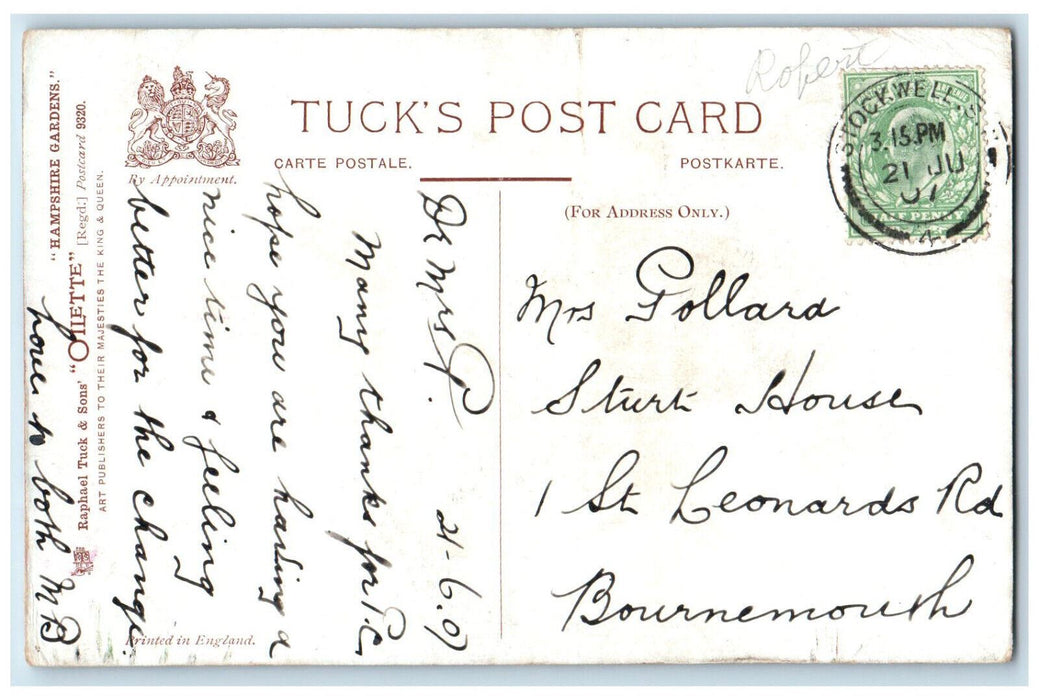 Robert
TUCK'S POST CARD
CARTE POSTALE.
POSTKARTE.
By Appointment.
(FOR ADDRESS ONLY.)
STOCKWELL
3.15.PM
21 JU
07
4
HALF PENNY
Mrs Gollard
Sturt House
1 St Leonards Rd
Bournemouth
Dr Mrs G. 21.6.07
Many thanks for P.C
hope you are having a
nice time & feeling
better for the change
love to both MB
"HAMPSHIRE GARDENS."
Raphael Tuck & Sons' "OILETTE" [Regd.] Postcard 9320.
ART PUBLISHERS TO THEIR MAJESTIES THE KING & QUEEN.
Printed in England.